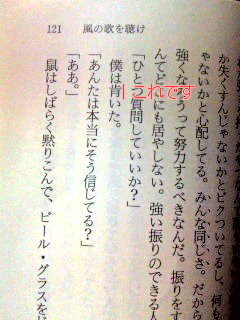 121　風の歌を聴け
か失くすんじゃないかとビクついてるし、何も
ゃないかと心配してる。みんな同じさ。だから
強くなろうって努力するべきなんだ。振りをす
んてどこにも居やしない。強い振りのできる人
「ひとつ質問していいか？」
僕は肯いた。
「あんたは本当にそう信じてる？」
「ああ。」
鼠はしばらく黙りこんで、ビール・グラスを
これです